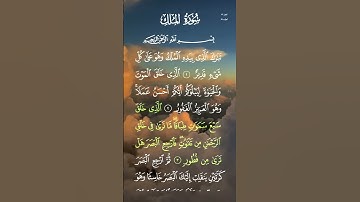 سُورَةُ الْمُلْكِ
بِسْمِ اللَّهِ الرَّحْمَٰنِ الرَّحِيمِ
تَبَٰرَكَ ٱلَّذِى بِيَدِهِ ٱلْمُلْكُ وَهُوَ عَلَىٰ كُلِّ
شَىْءٍ قَدِيرٌ ١ ٱلَّذِى خَلَقَ ٱلْمَوْتَ
وَٱلْحَيَوٰةَ لِيَبْلُوَكُمْ أَيُّكُمْ أَحْسَنُ عَمَلًا
وَهُوَ ٱلْعَزِيزُ ٱلْغَفُورُ ٢ ٱلَّذِى خَلَقَ
سَبْعَ سَمَٰوَٰتٍ طِبَاقًا مَّا تَرَىٰ فِى خَلْقِ
ٱلرَّحْمَٰنِ مِن تَفَٰوُتٍ فَٱرْجِعِ ٱلْبَصَرَ هَلْ
تَرَىٰ مِن فُطُورٍ ٣ ثُمَّ ٱرْجِعِ ٱلْبَصَرَ
كَرَّتَيْنِ يَنقَلِبْ إِلَيْكَ ٱلْبَصَرُ خَاسِئًا وَهُوَ